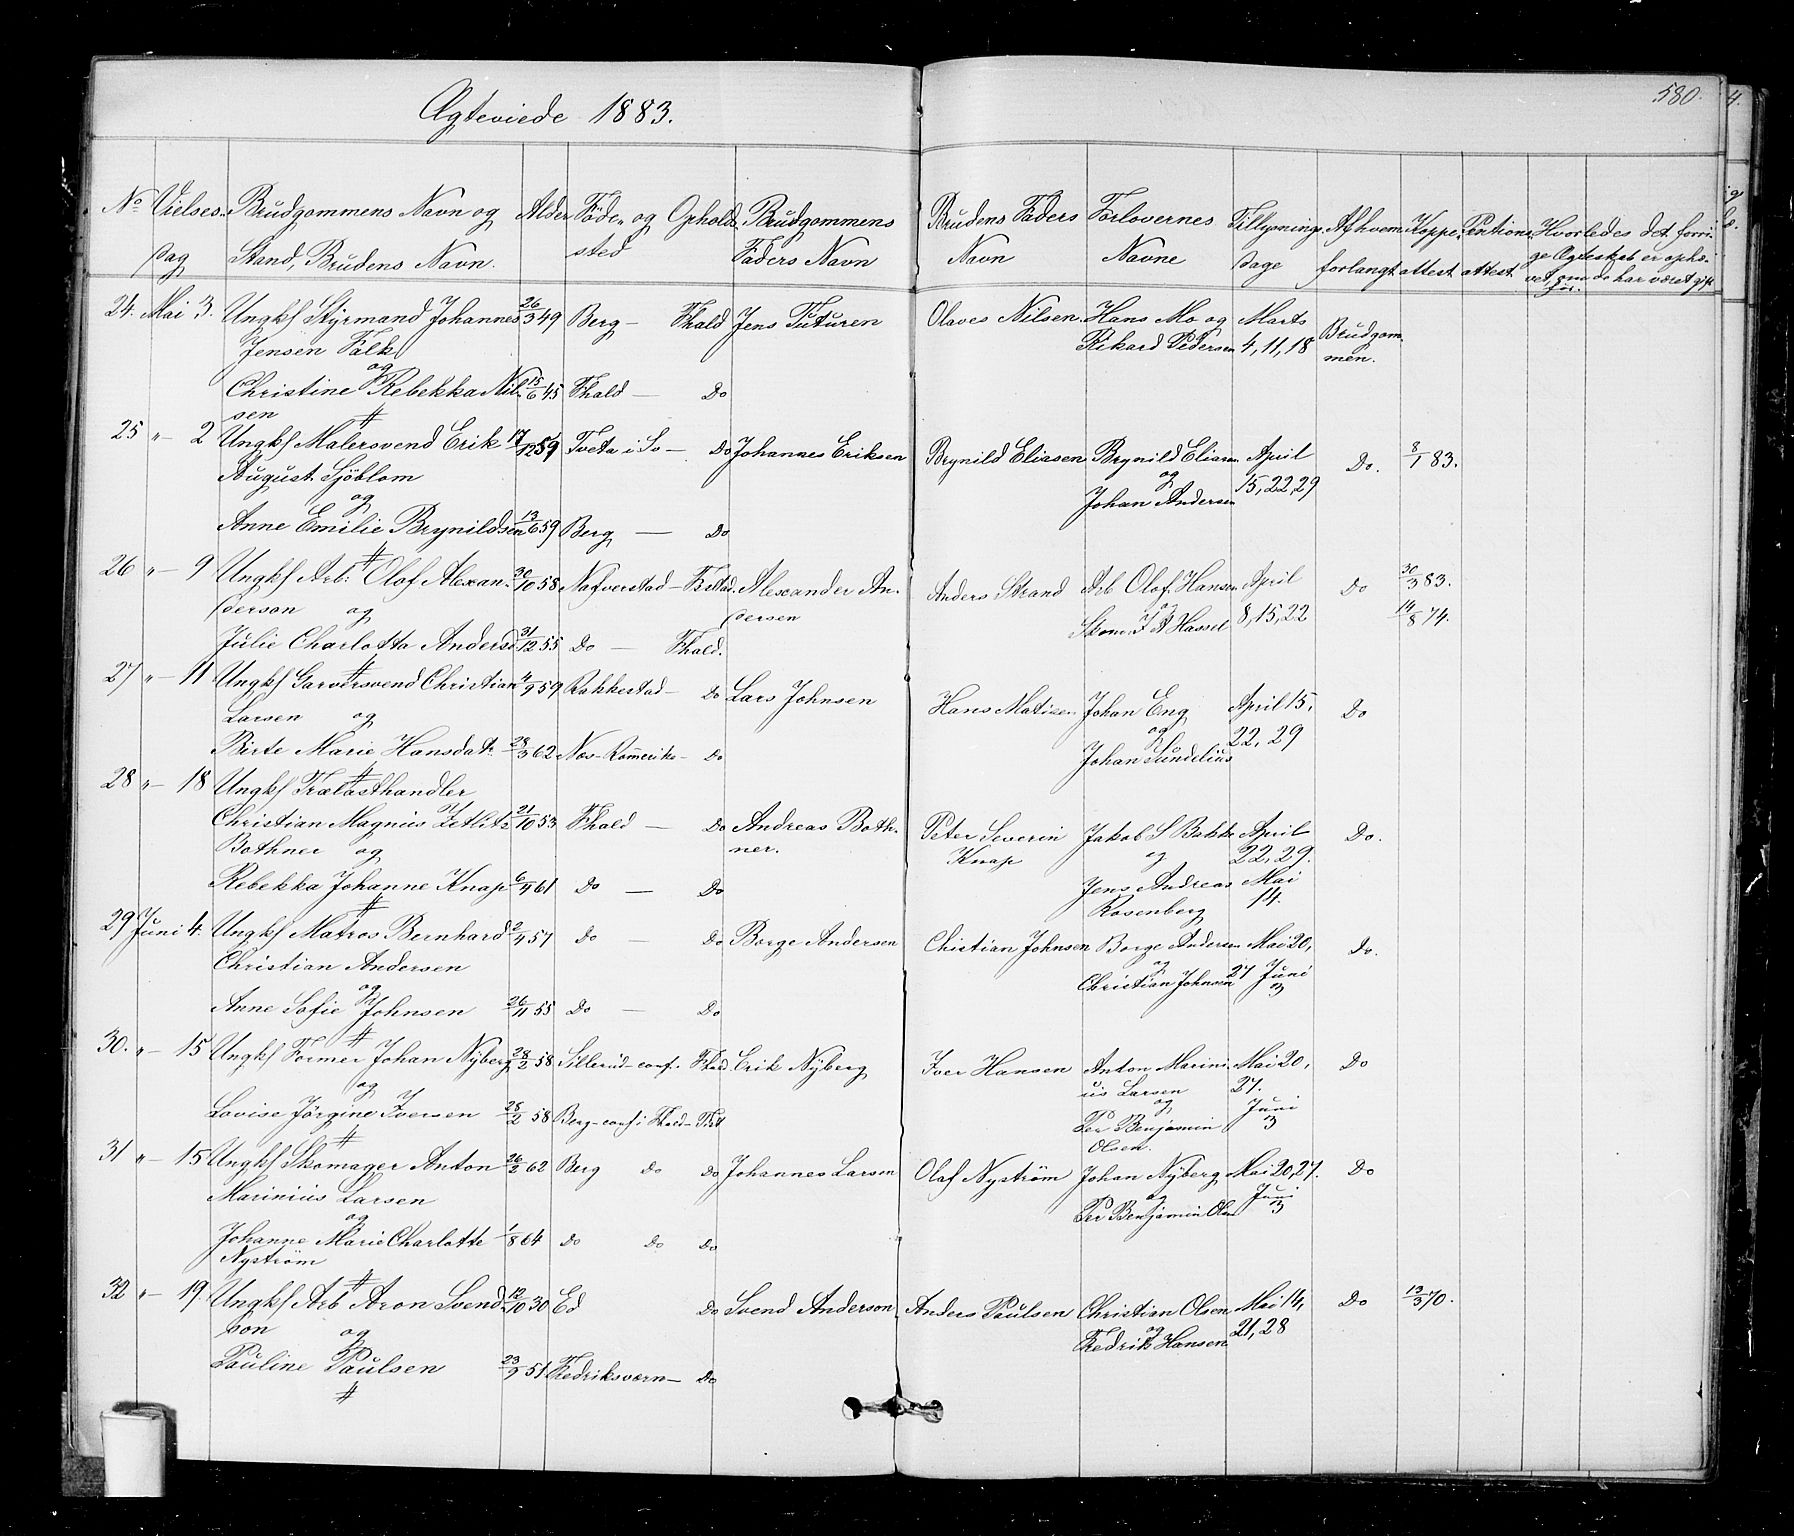 Ægteviede 1883.
580.
No Vielses- dag
Brudgommens Navn og Stand, Brudens Navn.
Alder
Føde- og Opholds- sted
Brudgommens Faders Navn
Brudens Faders Navn
Forlovernes Navne
Tillysnings dage
Af hvem forlangt
Koppe attest
Hvorledes det forri- ge Ægteskab er ophæ- vet, om de har været gift før.
24. Mai 3. Ungkf Styrmand Johannes 26/3 49 Berg — Fhald Jens Tuturen Olaves Nilsen Hans Mo og Marts Brudgom
Jensen Falk Rikard Pedersen 4, 11, 18 men.
og
Christine Rebekka Nil- 15/6 45 Fhald — Do
sen #
25 „— 2 Ungkf Malersvend Erik 17/12 59 Tveta i So — Do Johannes Eriksen Brynild Eliasen Brynild Eliasen April Do. 8/1 83.
August Sjöblom og 15, 22, 29
og Johan Andersen
Anne Emilie Brynildsen 13/6 59 Berg — Do
#
26 „— 9 Ungkf Arb: Olof Alexan- 30/10 58 Nafverstad — Fhald. Alexander An- Anders Strand Arb Olof Hansen April Do 30/3 83.
derson og dersen Skom. F A Hassel 8, 15, 22 14/8 74.
Julie Charlotta Anders 31/12 55 Do — Fhald.
#
27 „— 11 Ungkf Garversvend Christian 4/9 59 Rakkestad — Do Lars Johnsen Hans Matisen Johan Eng April 15, Do
Larsen og og 22, 29
Birte Marie Hansdat. 28/3 62 Næs-Romerike — Do Johan Sundelius
#
28 „— 18 Ungkf Trælasthandler
Christian Magnus Zetlitz 21/10 53 Fhald — Do Andreas Both- Peter Severin Jakob S Bakke April Do.
Bothner og ner. Knap og 22, 29.
Rebekka Johanne Knap 6/4 61 Do — Do Jens Andreas Mai
# Rosenberg 14.
29 Juni 4. Ungkf Matros Bernhard 2/4 57 Do — Do Borge Andersen Chistian Johnsen Borge Andersen Mai 20, Do.
Christian Andersen og 27 Juni
og Christian Johnsen 3
Anne Sofie Johnsen 26/11 55 Do — Do
#
30. „— 15 Ungkf Former Johan Nyberg 28/2 58 Sillerud — conf. Fhald. Erik Nyberg Iver Hansen Anton Marini- Mai 20, Do
og us Larsen 27.
Lovise Jörgine Iversen 28/2 58 Berg — conf i Fhald — og Juni
# Per Benjamin 3
Olsen.
31 „— 15 Ungkf Skomager Anton 26/2 62 Berg Do Do Johannes Larsen Olaf Nystrøm Johan Nyberg Mai 20, 27. Do
Marinius Larsen og Juni
og Per Benjamin Olsen 3
Johanne Marie Charlotte 1/8 64 Do Do Do
Nystrøm
#
32 „— 19. Ungkf Arb Aron Svend- 12/10 30 Ed Do Svend Anderson Anders Paulsen Christian Olsen Mai 14, Do 13/3 70.
son og og 21, 28
Pauline Paulsen 23/9 51 Fredriksværn — Do Fredrik Hansen
#